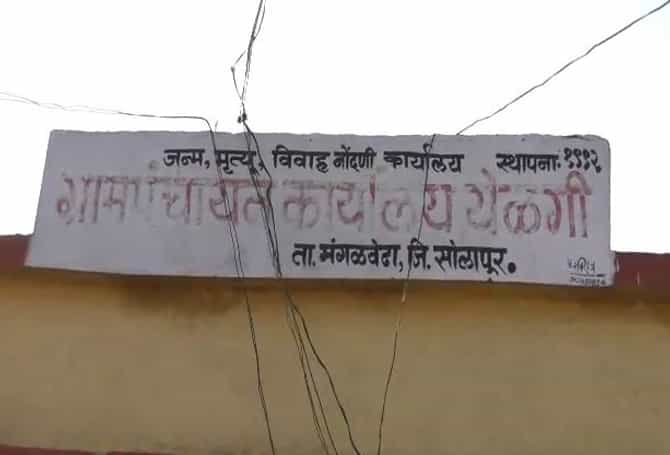 जन्म, मृत्यू, विवाह नोंदणी कार्यालय स्थापना: १९९२
ग्रामपंचायत कार्यालय येळगी
ता. मंगळवेढा, जि. सोलापूर.